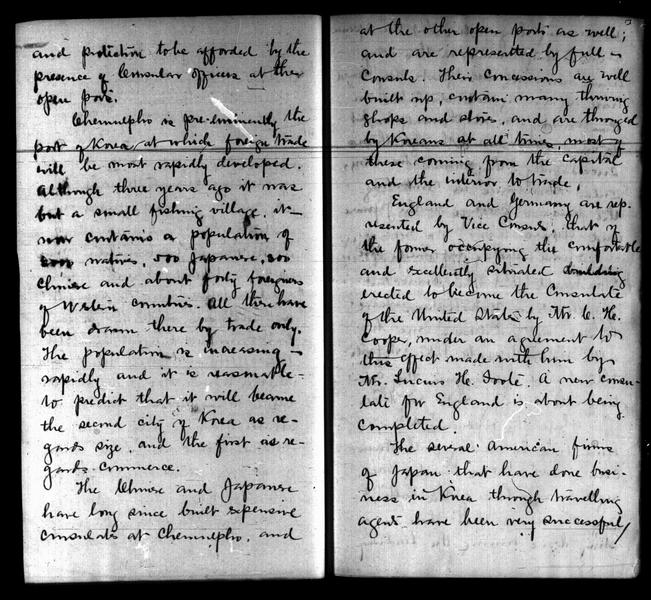 and protection to be afforded by the
presence of Consular officers at these
open ports.
Chemulpho is pre-eminently the
port of Korea at which foreign trade
will be most rapidly developed.
Although three years ago it was
but a small fishing village, it
now contains a population of
natives, 500 Japanese, 200
Chinese and about forty foreigners
of Western countries. All these have
been drawn there by trade only.
The population is increasing
rapidly and it is reasonable
to predict that it will become
the second city of Korea as re-
gards size, and the first as re-
gards commerce.
The Chinese and Japanese
have long since built expensive
consulates at Chemulpho, and
at the other open ports as well;
and are represented by full
Consuls. Their concessions are well
built up, contain many thriving
shops and stores, and are thronged
by Koreans at all times, most of
these coming from the capital
and the interior to trade.
England and Germany are rep-
resented by Vice Consuls, that of
the former occupying the comfortable
and excellently situated building
erected to become the Consulate
of the United States by Mr. C. H.
Cooper, under an agreement to
this effect made with him by
Mr. Lucius H. Foote. A new consu-
late for England is about being
completed.
The several American firms
of Japan that have done busi-
ness in Korea through travelling
agents have been very successful,